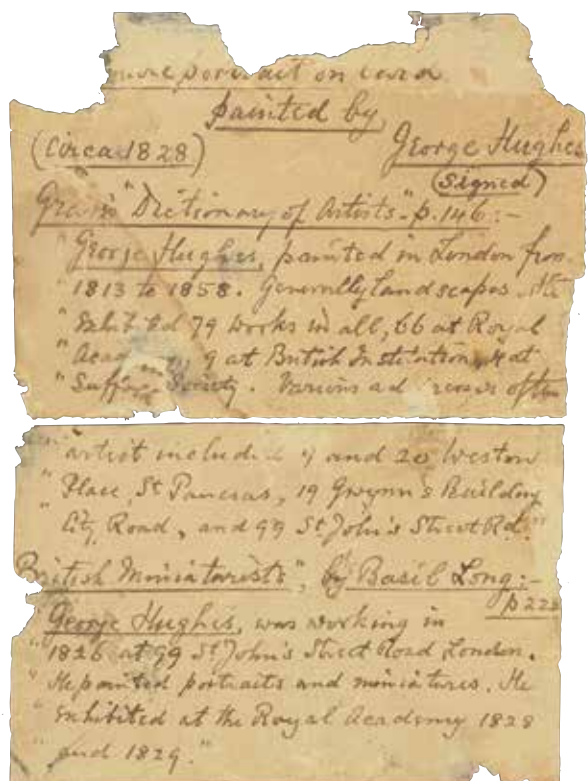 portrait on card
painted by
(Circa 1828) George Hughes
(Signed)
"Dictionary of Artists" p. 146:-
"George Hughes, painted in London from
"1813 to 1858. Generally landscapes. He
"Exhibited 79 works in all, 66 at Royal
"Academy, 9 at British Institution, 4 at
"Suffolk Society. Various addresses of the
"artist included 9 and 20 Weston
"Place, St Pancras, 19 Gwynn's Building
"City Road, and 99 St John's Street Rd."
British Miniaturists", by Basil Long:-
p 228
"George Hughes, was working in
"1826 at 99 St John's Street Road London.
"He painted portraits and miniatures. He
"Exhibited at the Royal Academy 1828
"and 1829."